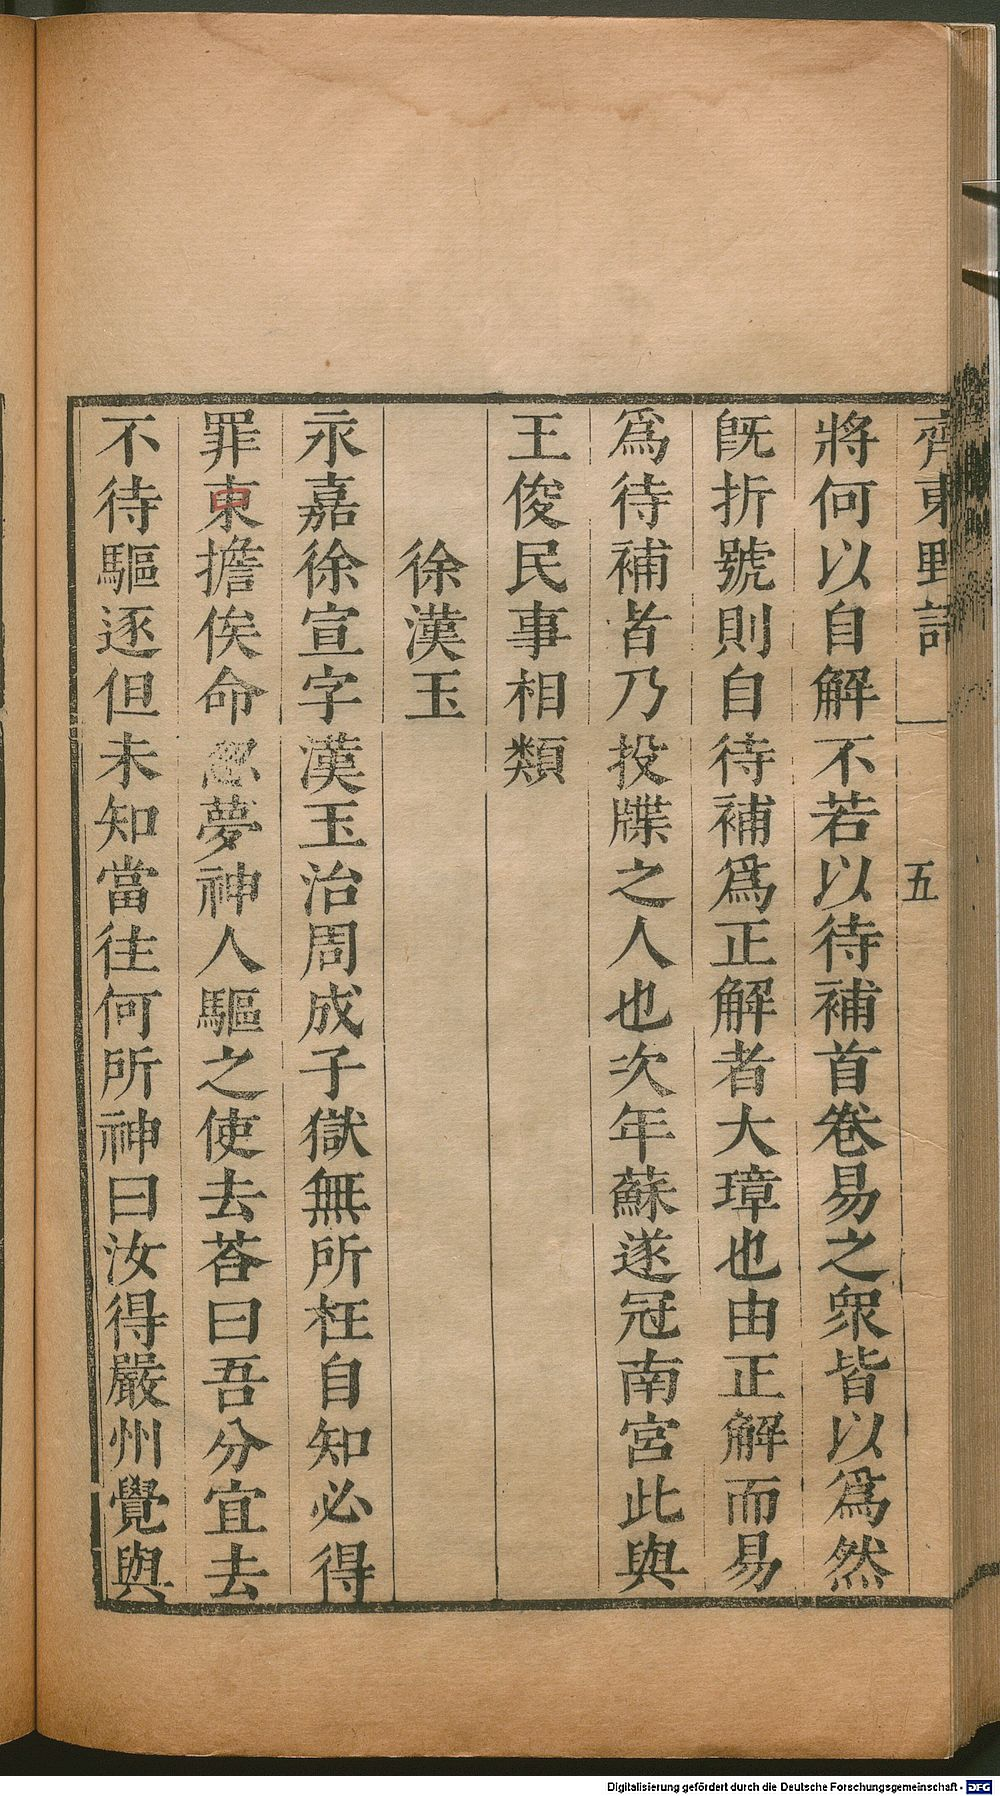 齊東野語
五
將何以自解不若以待補首卷易之衆皆以爲然
旣折號則自待補爲正解者大璋也由正解而易
爲待補者乃投牒之人也次年蘇遂冠南宮此與
王俊民事相類
徐漢玉
永嘉徐宣字漢玉治周成子獄無所枉自知必得
罪東擔俟命忽夢神人驅之使去荅曰吾分宜去
不待驅逐但未知當往何所神曰汝得嚴州覺與
Digitalisierung gefördert durch die Deutsche Forschungsgemeinschaft - DFG